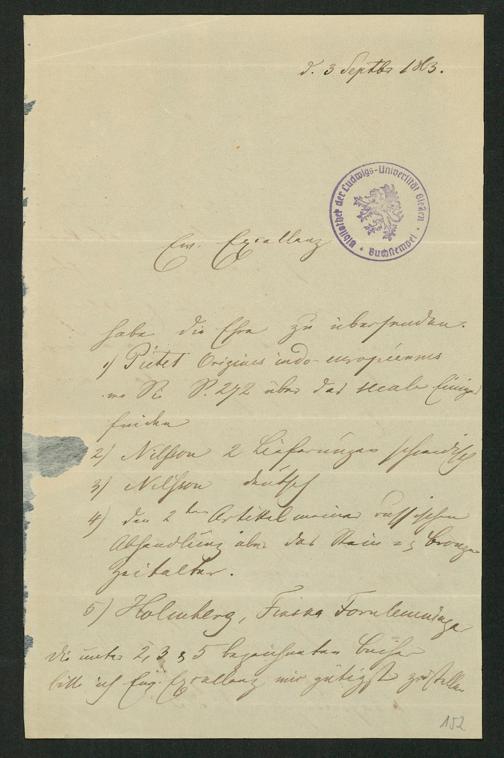 d. 3. Septbr 1863.
Bibliothek der Ludwigs-Universität Gießen
Buchstempel
Ew. Excellenz
habe die Ehre zu übersenden.
1) Pictet Origines indo-européennes
S. 272 über das
finden
2) Nilsson 2 Lieferungen schwedisch
3) Nilsson deutsch
4) den 2ten Artikel meiner russischen
Abhandlung über das Stein- u. Bronze
Zeitalter.
5) Holmberg, Finska Fornlemningar
die unter 2, 3 & 5 bezeichneten Bücher
bitte ich Ew. Excellenz mir gütigst zuzustellen
152